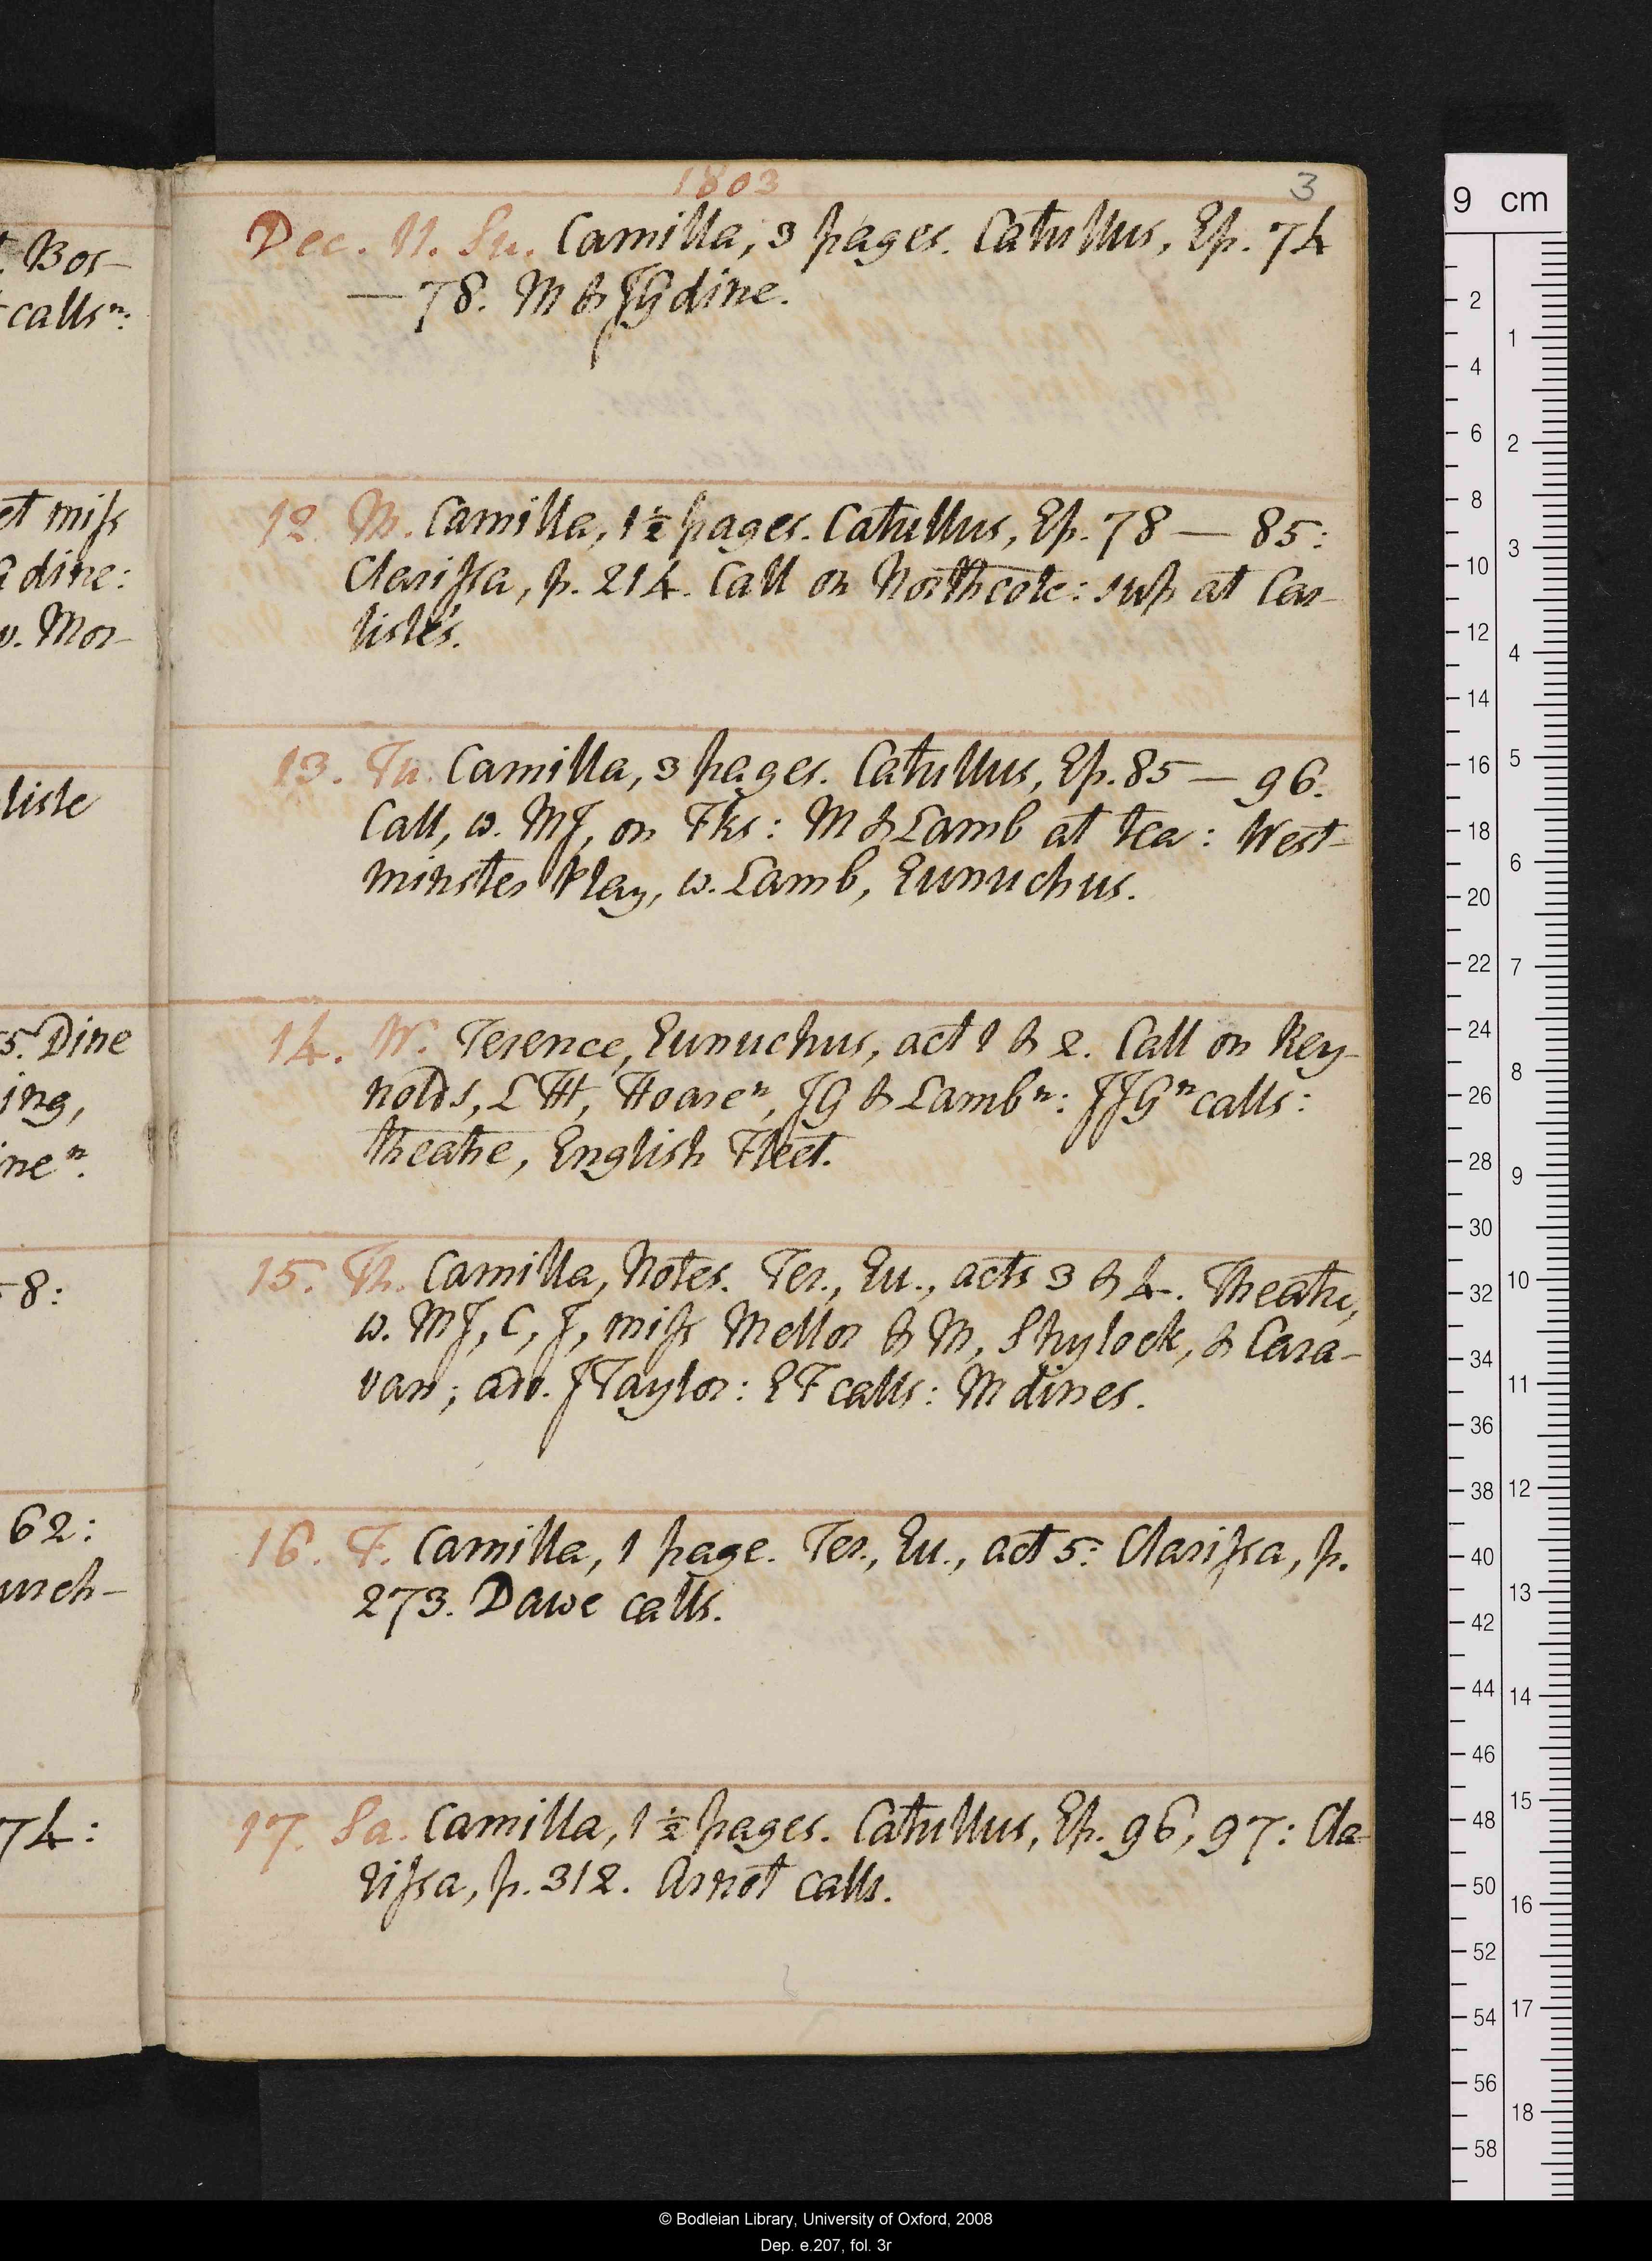 t. Bos-
- calls n:
et miss
G dine:
v. Mor-
liste
5. Dine
ing,
ne n.
- 8:
62:
urch-
74:
1803
3
Dec. 11. Su. Camilla, 3 pages. Catullus, Ep. 74
— 78. M & JG dine.
12. M. Camilla, 1 ½ pages. Catullus, Ep. 78 — 85:
Clarissa, p. 214. Call on Northcote: sup at Car-
lisle's.
13. Tu. Camilla, 3 pages. Catullus, Ep. 85 — 96.
Call, w. MJ, on Fks: M & Lamb at tea: West-
minster Play, w. Lamb, Eunuchus.
14. W. Terence, Eunuchus, act 1 & 2. Call on Rey-
nolds, LH, Hoare n, JG & Lamb n: JJG n calls:
theatre, English Fleet.
15. Th. Camilla, Notes. Ter., Eu., acts 3 & 4. Theatre,
w. MJ, C, J, miss Mellor & M, Shylock, & Cara-
van; adv. JTaylor: EF calls: M dines.
16. F. Camilla, 1 page. Ter., Eu., act 5: Clarissa, p.
273. Dawe calls.
17. Sa. Camilla, 1 ½ pages. Catullus, Ep. 96, 97: Cla-
rissa, p. 312. Arnot calls.
9 cm
2
4
6
8
10
12
14
16
18
20
22
24
26
28
30
32
34
36
38
40
42
44
46
48
50
52
54
56
58
1
2
3
4
5
6
7
8
9
10
11
12
13
14
15
16
17
18
© Bodleian Library, University of Oxford, 2008
Dep. e.207, fol. 3r